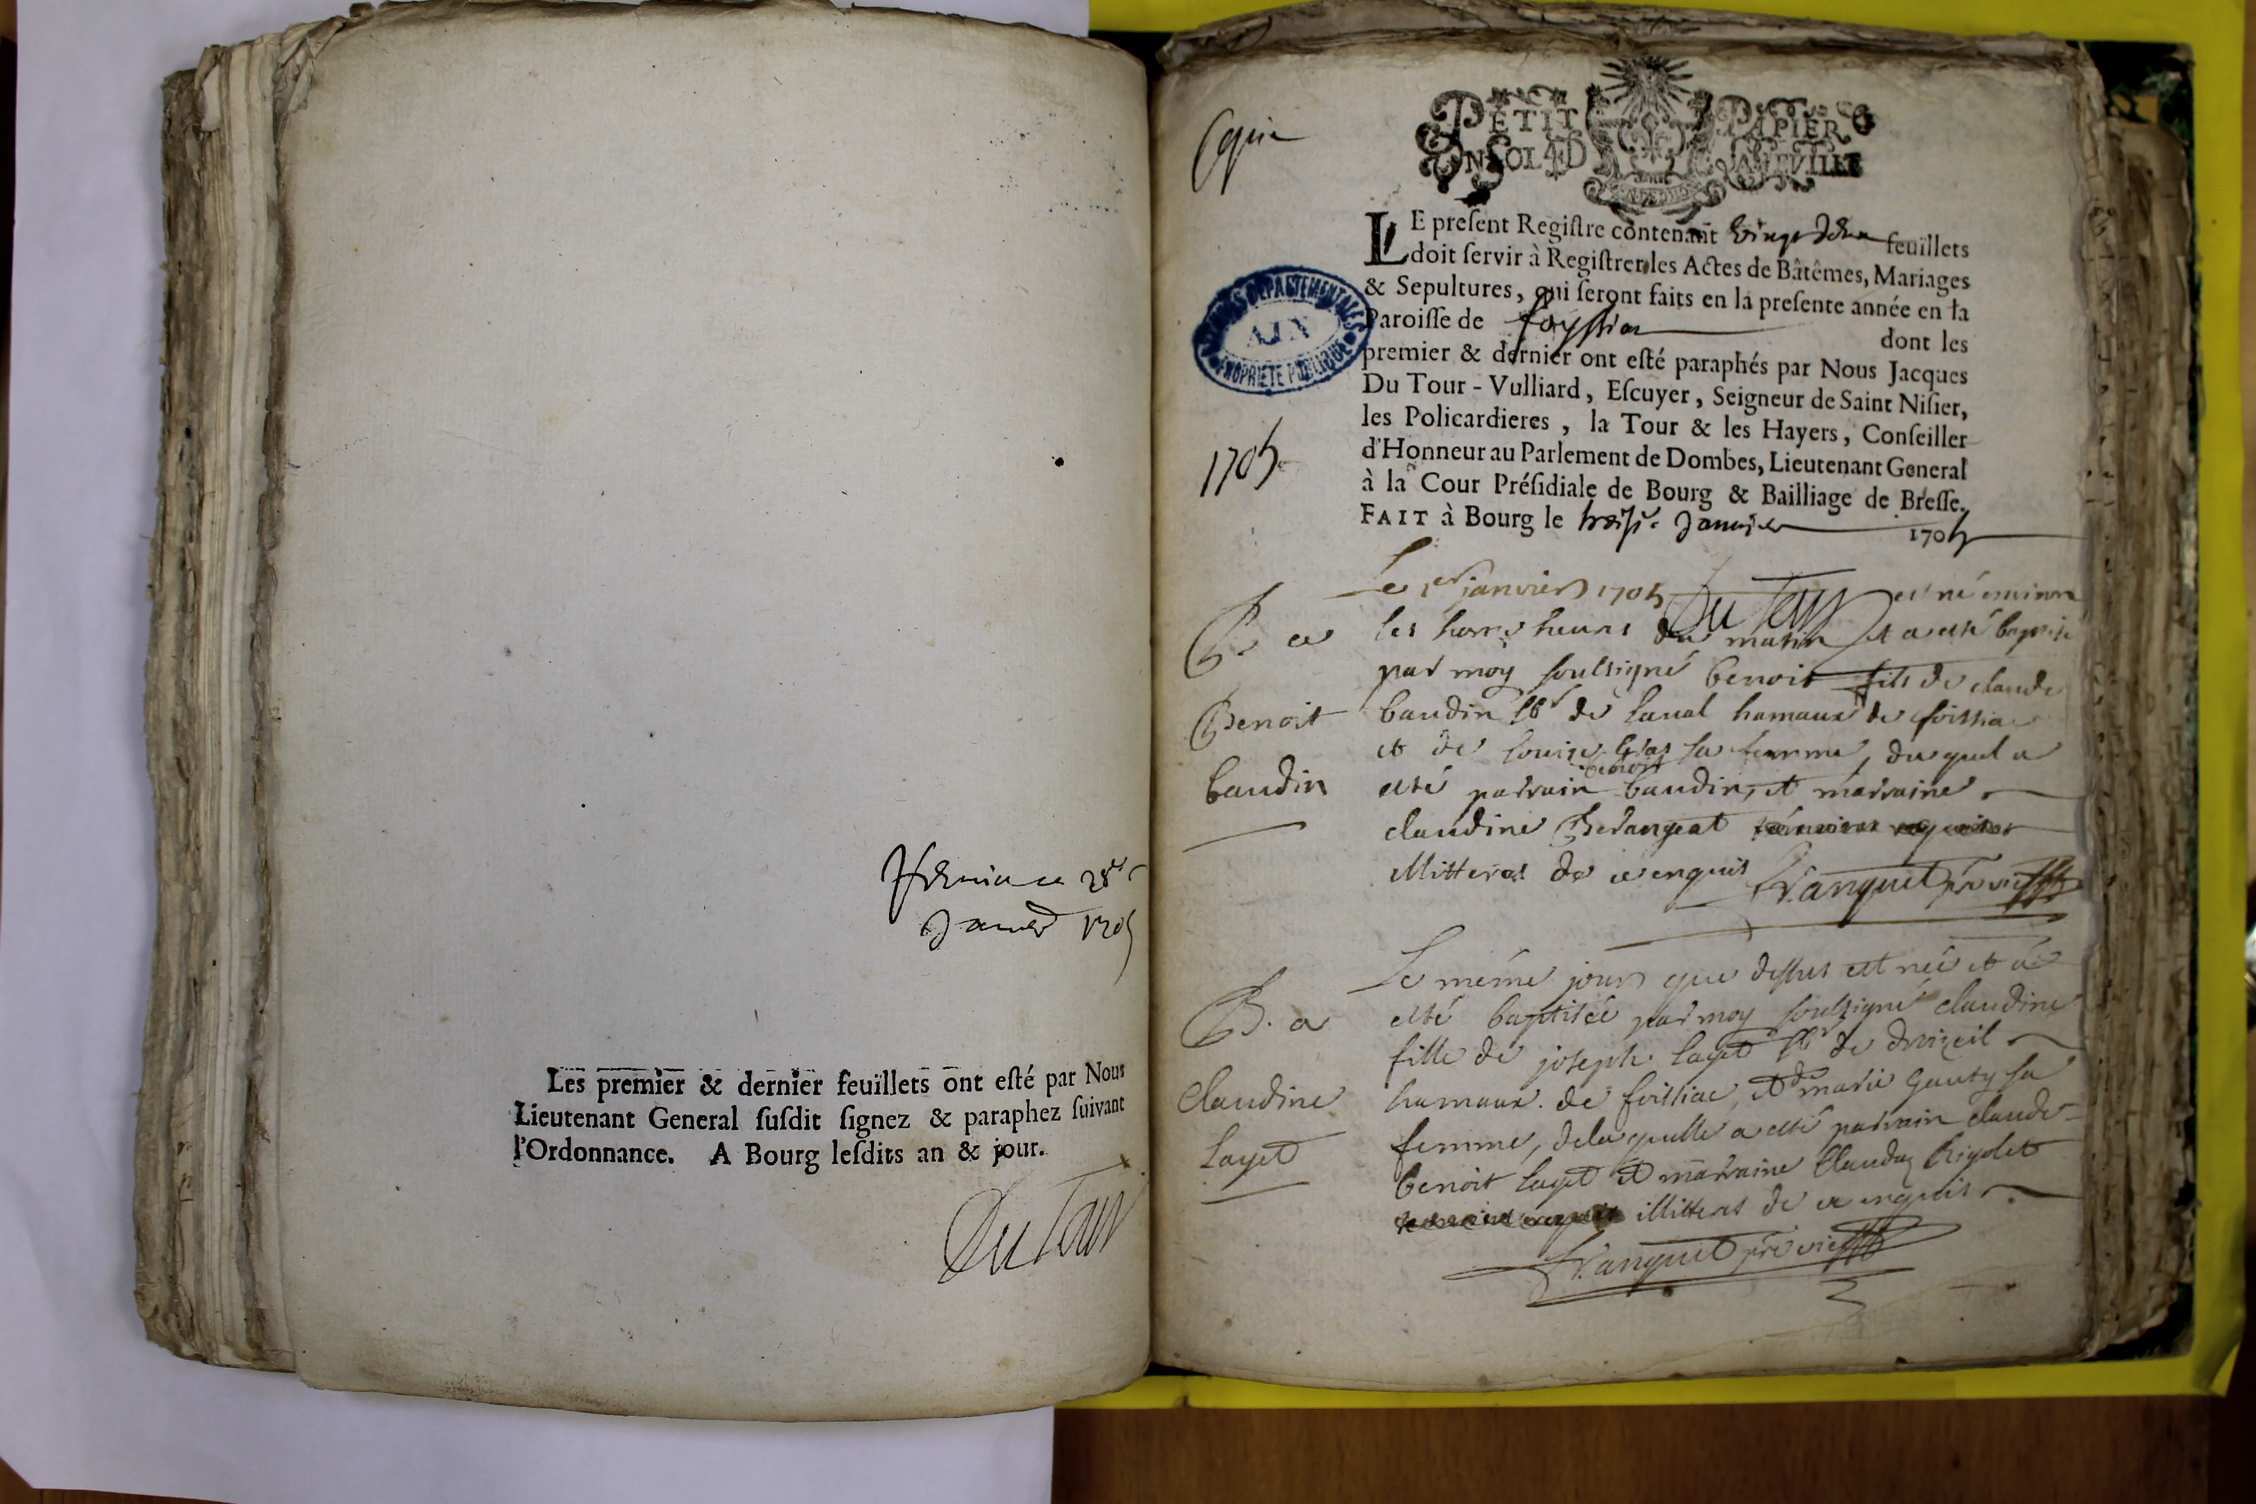 Janvier 1705
Les premier & dernier feuillets ont esté par Nous
Lieutenant General ſuſdit ſignez & paraphez ſuivant
l'Ordonnance. A Bourg leſdits an & jour.
Du Tour
Copie
PETIT PAPIER
UN SOL 4 D LA FEUILLE
LE preſent Regiſtre contenant vingt deux feuillets
doit ſervir à Regiſtrer les Actes de Bâtêmes, Mariages
& Sepultures, qui ſeront faits en la preſente année en la
Paroiſſe de foyssia dont les
premier & dernier ont eſté paraphés par Nous Jacques
Du Tour - Vulliard, Eſcuyer, Seigneur de Saint Niſier,
les Policardieres, la Tour & les Hayers, Conſeiller
d'Honneur au Parlement de Dombes, Lieutenant General
à la Cour Préſidiale de Bourg & Bailliage de Breſſe.
FAIT à Bourg le Janvier 1705
ARCHIVES DEPARTEMENTALES
AIN
PROPRIETE PUBLIQUE
1705
Le 1er janvier 1705 Du Tour est né environ
les heures du matin et a esté baptisé
par moy soulsigné benoit fils de claude
baudin de laual hamaux de foissia
et de louise sa femme, du quel a
benoit
esté parrain baudin, et marraine
claudine Berangeat
illitteres de ce enquis Franquet
B. a
Benoit
baudin
Le même jour que dessus est née et a
esté baptisée par moy soulsigné claudine
fille de joseph layet de
hamaux de foissiae, et de marie Gauty sa
femme, de la quelle a esté parrain claude
benoit layet et marraine Clauda Rigolet
illitteres de ce enquis
Franquet
B. a
Claudine
Layet